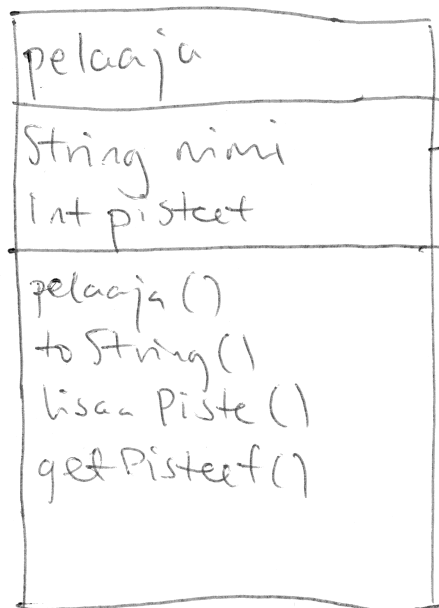 pelaaja
String nimi
int pisteet
pelaaja()
toString()
lisaa Piste()
getPisteet()